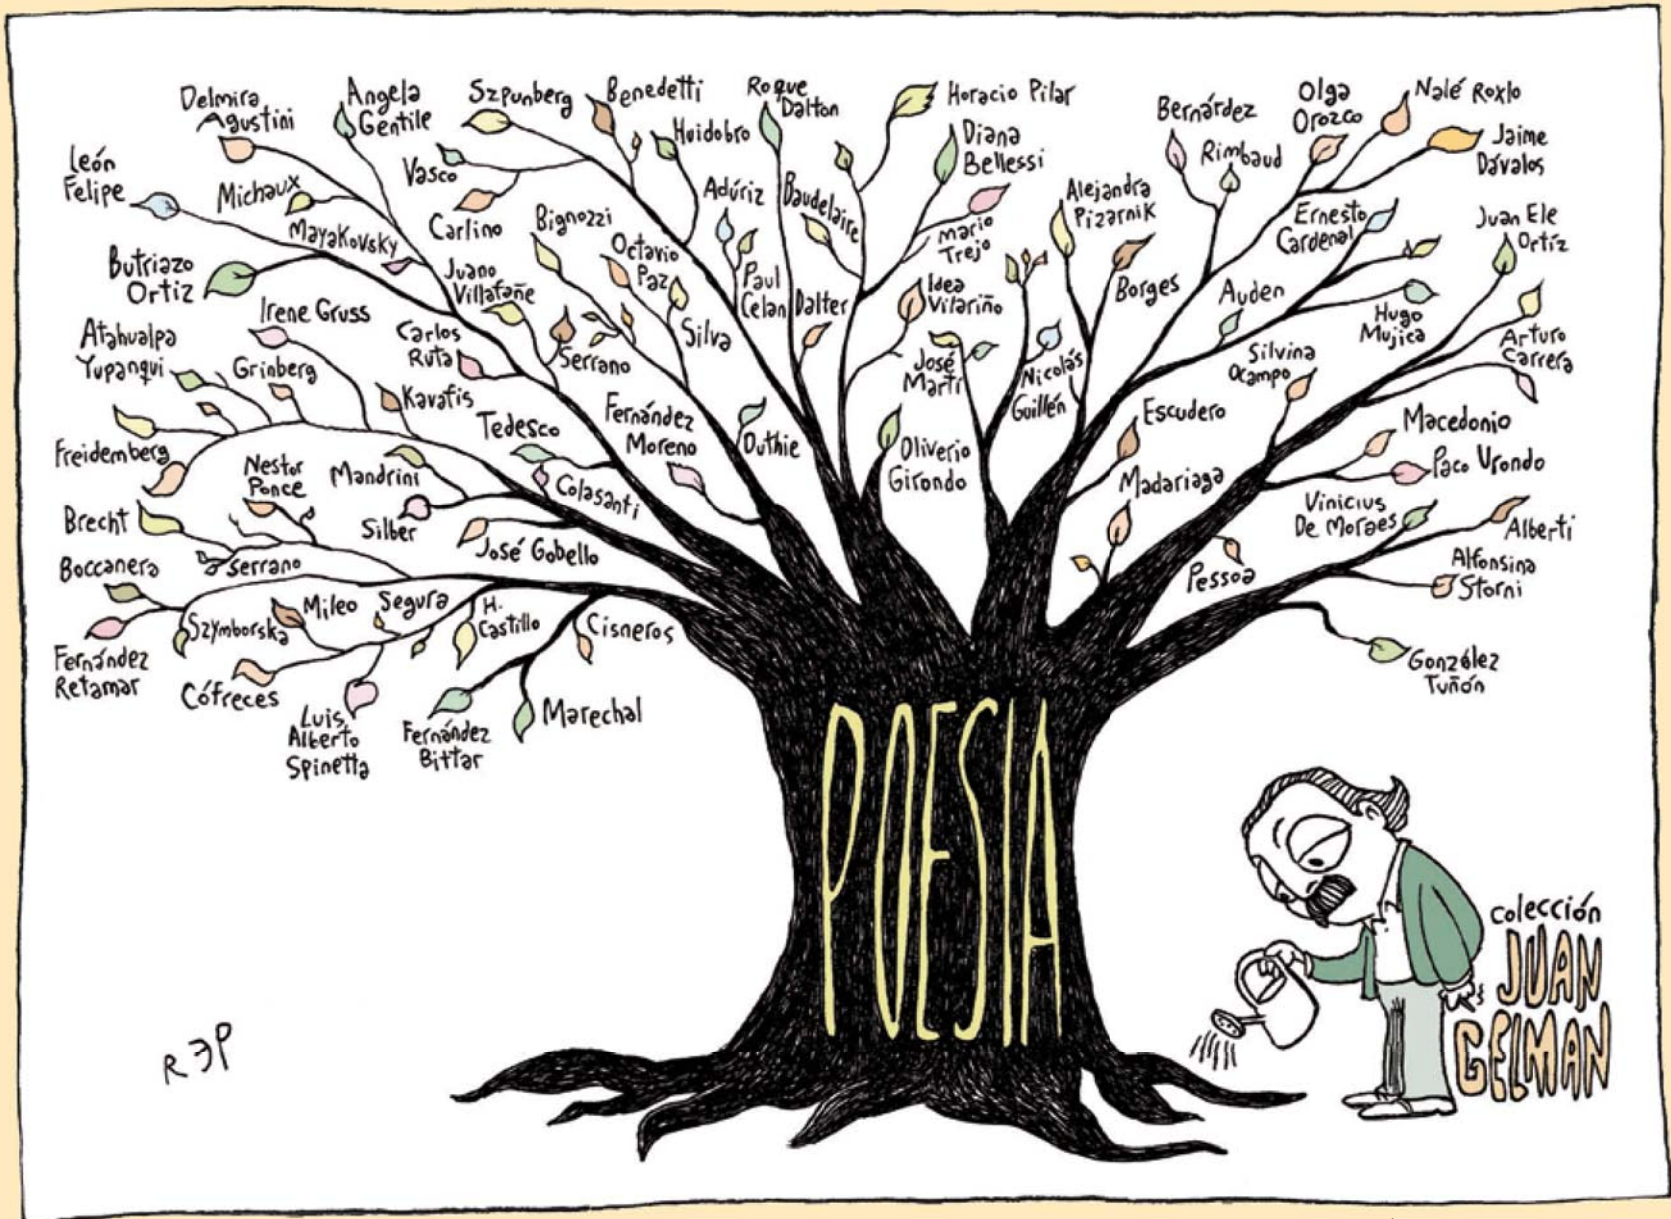 Delmira
Agustini
Angela
Gentile
Szpunberg
Benedetti
Roque
Dalton
Horacio Pilar
Bernárdez
Olga
Orozco
Nalé Roxlo
León
Felipe
Michaux
Vasco
Huidobro
Diana
Bellessi
Rimbaud
Jaime
Dávalos
Mayakovsky
Carlino
Bignozzi
Adúriz
Baudelaire
Mario
Trejo
Alejandra
Pizarnik
Ernesto
Cardenal
Juan Ele
Ortíz
Butriazo
Ortiz
Juano
Villafañe
Octavio
Paz
Paul
Celan
Dalter
Idea
Vilariño
Borges
Auden
Hugo
Mujica
Atahualpa
Yupanqui
Irene Gruss
Grinberg
Carlos
Ruta
Serrano
Silva
José
Martí
Nicolás
Guillén
Silvina
Ocampo
Arturo
Carrera
Freidemberg
Kavafis
Tedesco
Fernández
Moreno
Duthie
Oliverio
Girondo
Escudero
Macedonio
Nestor
Ponce
Mandrini
Colasanti
Madariaga
Paco Urondo
Brecht
Silber
José Gobello
Vinicius
De Moraes
Alberti
Boccanera
Serrano
Pessoa
Alfonsina
Storni
Szymborska
Mileo
Segura
H.
Castillo
Cisneros
Fernández
Retamar
Cófreces
Luis
Alberto
Spinetta
Fernández
Bittar
Marechal
González
Tuñón
POESIA
colección
JUAN
GELMAN
REP